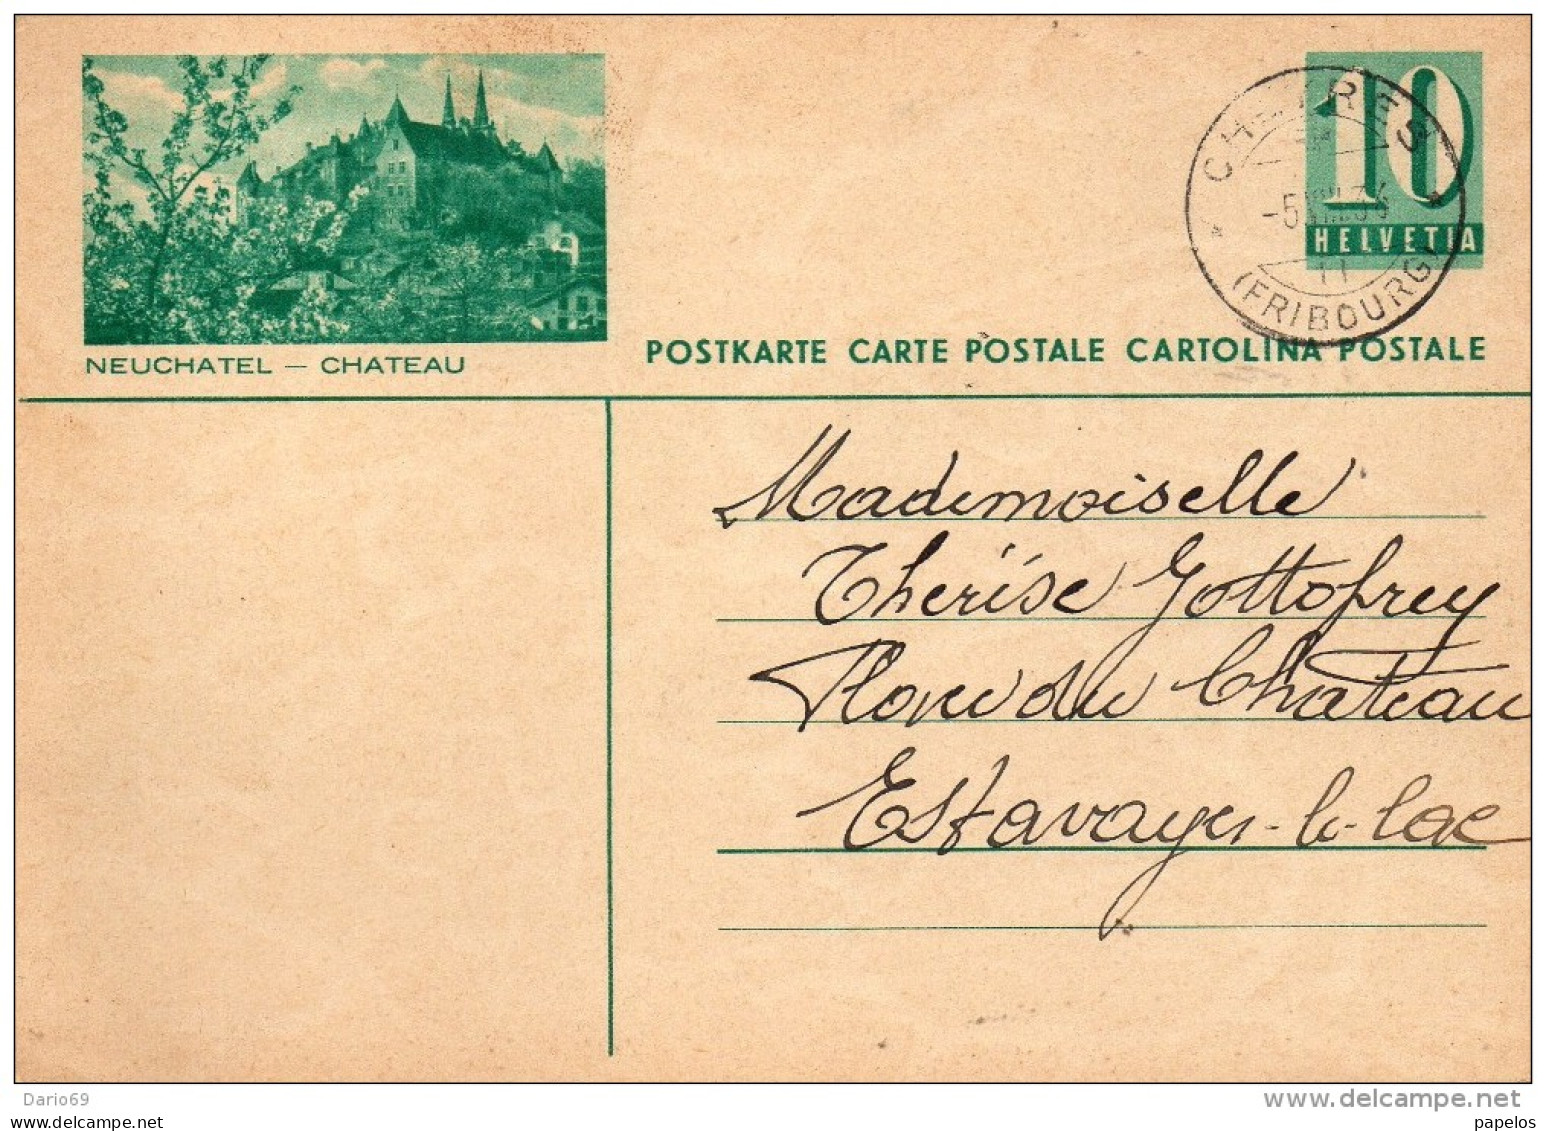 10
HELVETIA
CHEYRES
(FRIBOURG)
11
NEUCHATEL — CHATEAU
POSTKARTE CARTE POSTALE CARTOLINA POSTALE
Mademoiselle
Therèse Gottofrey
Place du Château
Estavayer-le-lac
Dario69
www.delcampe.net
www.delcampe.net
papelos